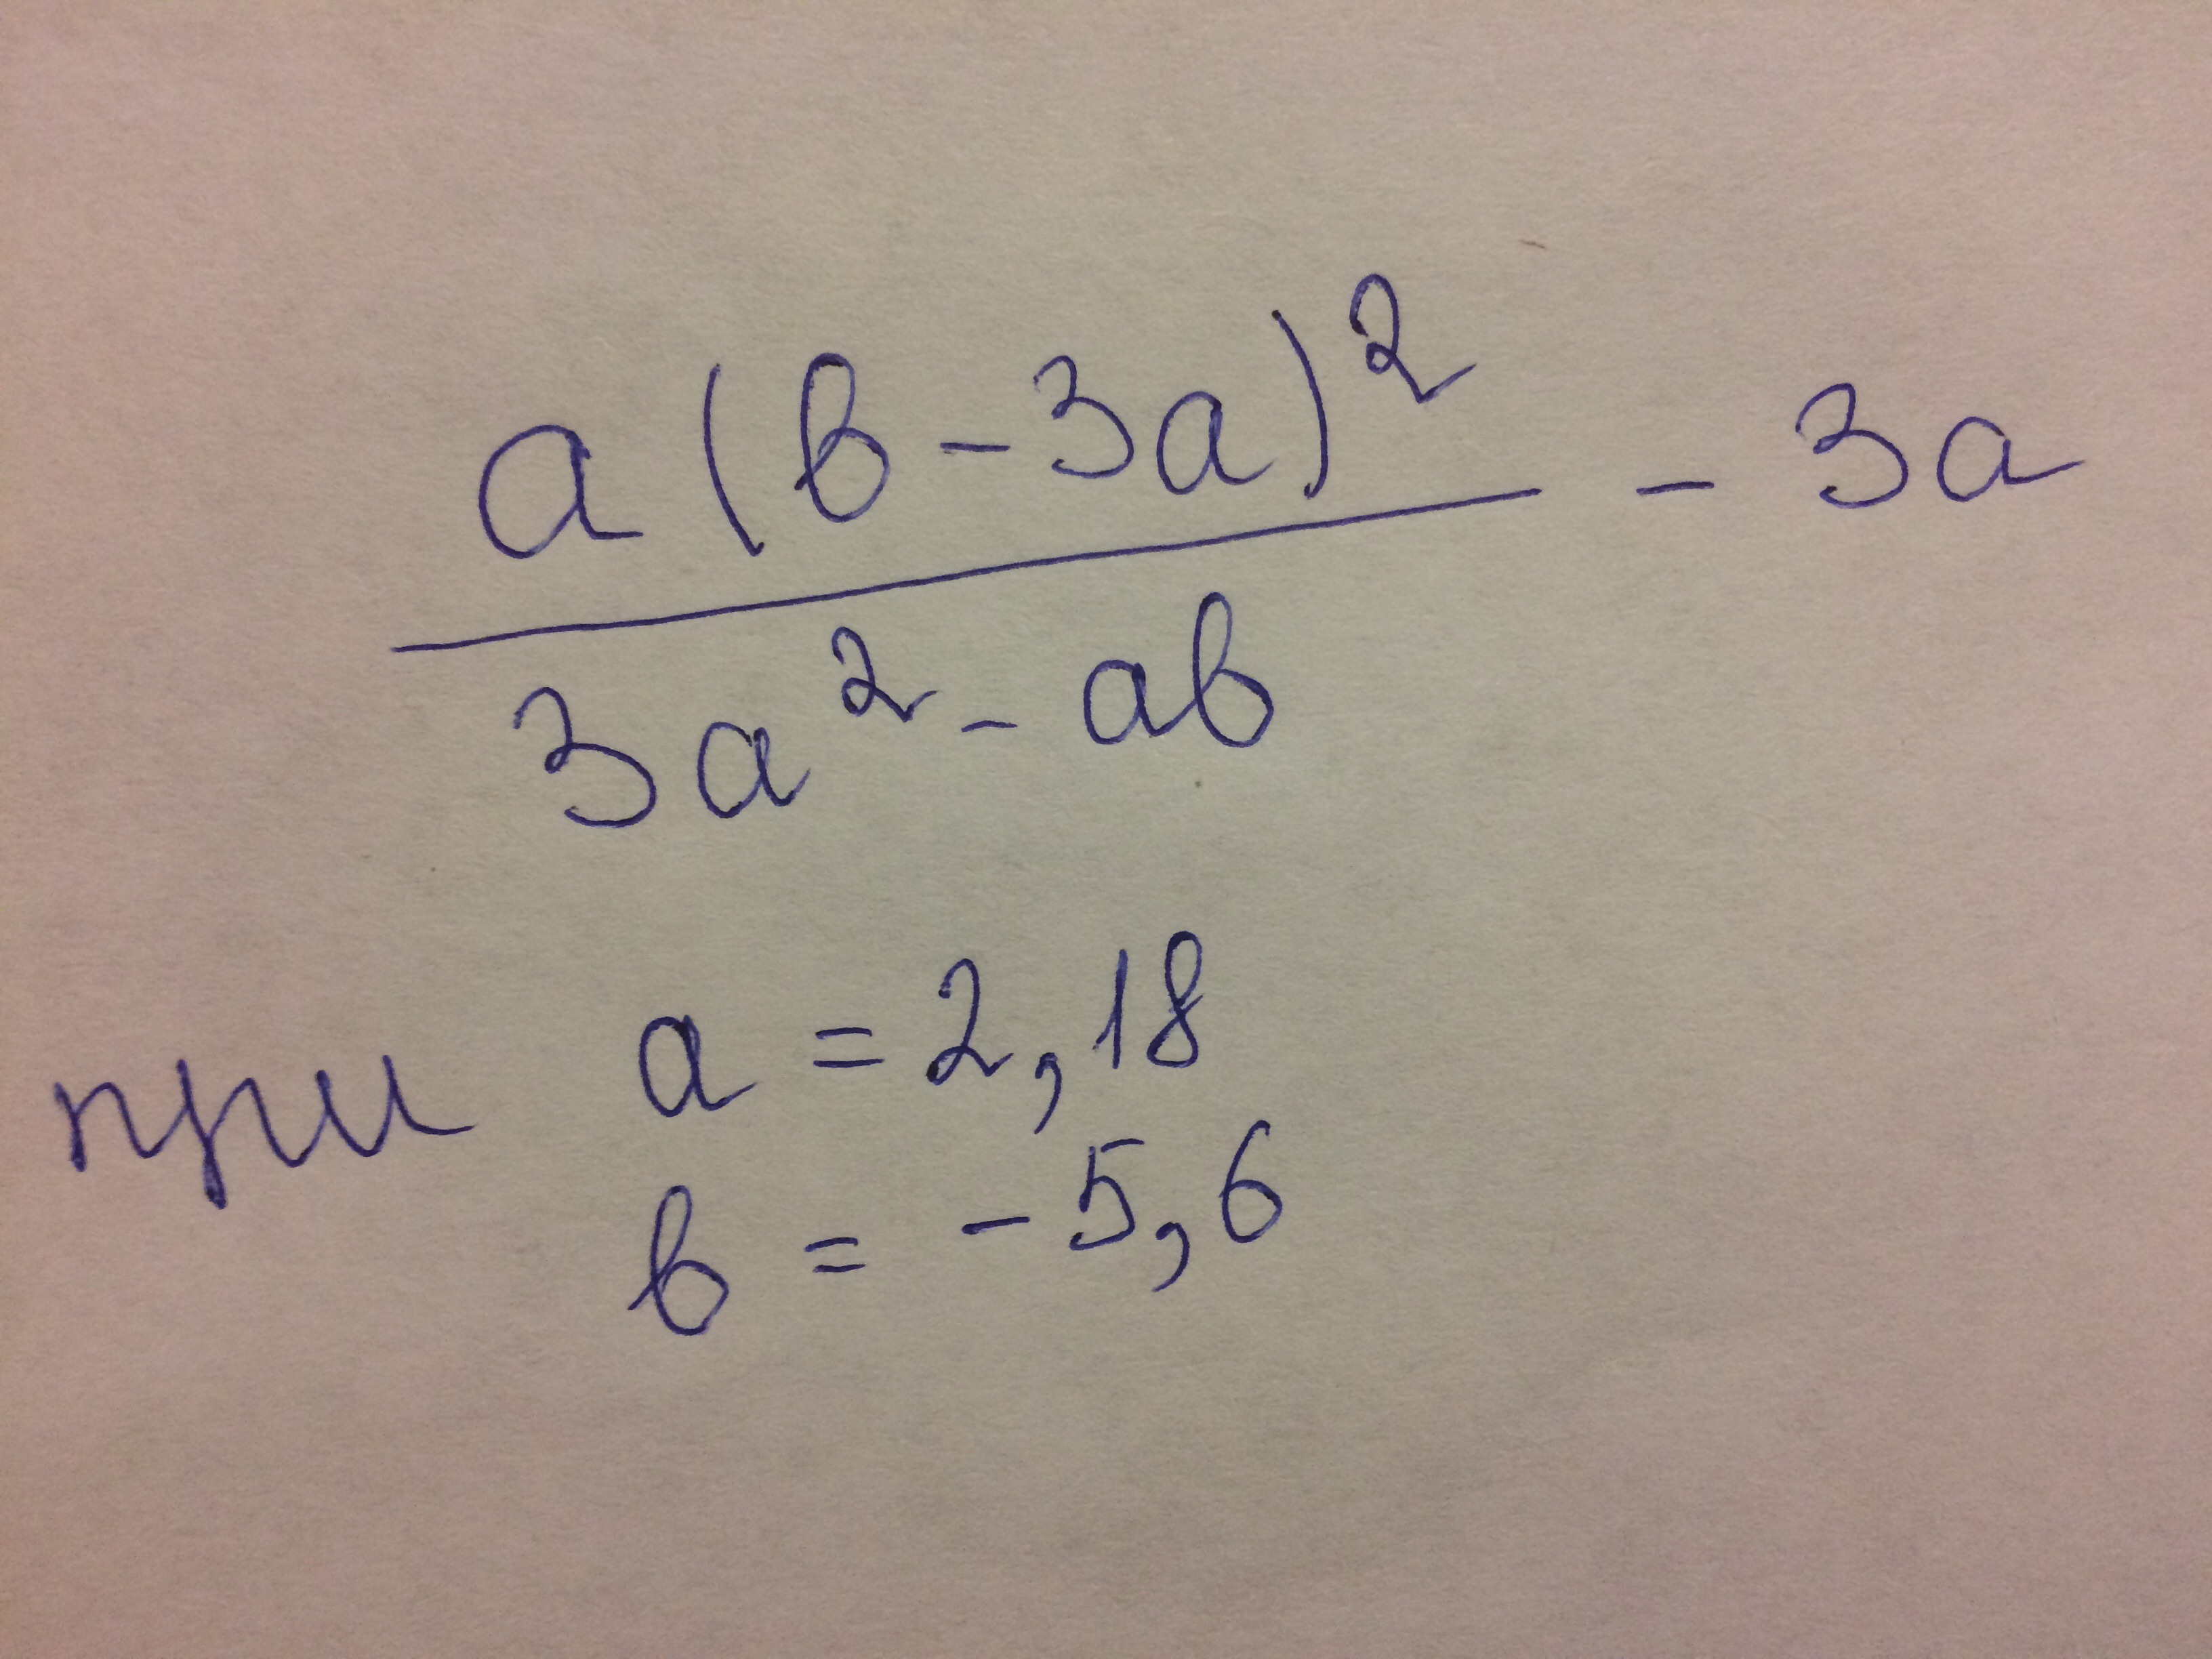 a(b-3a)² - 3a
3a² - ab
при a = 2,18
b = -5,6